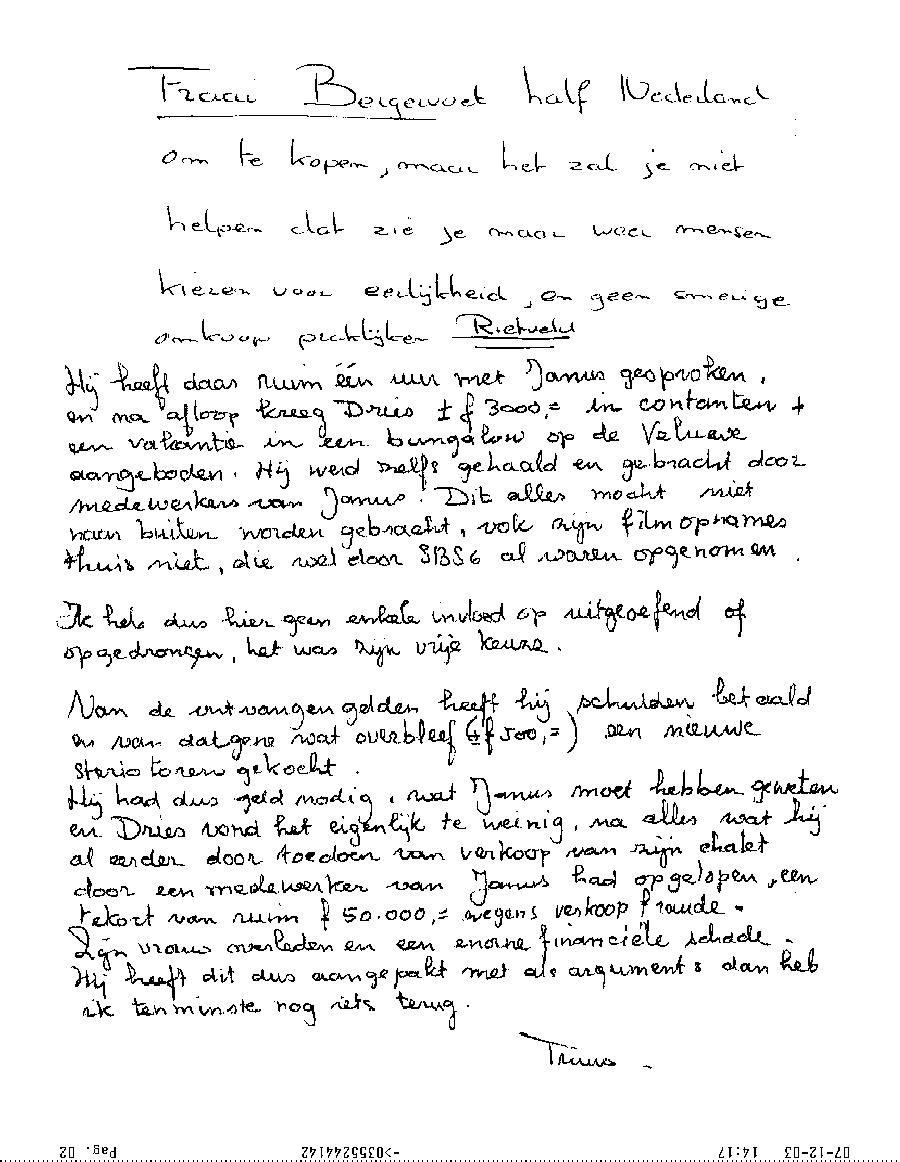 Fraai Borgewoet half Nederland
om te kopen, maar het zal je niet
helpen dat zie je maar weer mensen
kiezen voor eerlijkheid, en geen smerige
omkoop praktijken Rietveld
Hij heeft daar ruim één uur met Janus gesproken,
en na afloop kreeg Dries ± f 3000,= in contanten +
een vakantie in een bungalow op de Veluwe
aangeboden. Hij werd zelfs gehaald en gebracht door
medewerkers van Janus! Dit alles mocht niet
naar buiten worden gebracht, ook zijn filmopnames
thuis niet, die wel door SBS6 al waren opgenomen.
Ik heb dus hier geen enkele invloed op uitgeoefend of
opgedrongen, het was zijn vrije keuze.
Van de ontvangen gelden heeft hij schulden betaald
en van datgene wat overbleef (± f 500,=) een nieuwe
sterio toren gekocht.
Hij had dus geld nodig, wat Janus moet hebben geweten
en Dries vond het eigenlijk te weinig, na alles wat hij
al eerder door toedoen van verkoop van zijn chalet
door een medewerker van Janus had opgelopen, een
tekort van ruim f 50.000,= wegens verkoop fraude.
Zijn vrouw overleden en een enorme financiële schade.
Hij heeft dit dus aangepakt met als argument: dan heb
ik tenminste nog iets terug.
07-12-03 14:17 ->0355244142 Pag. 02